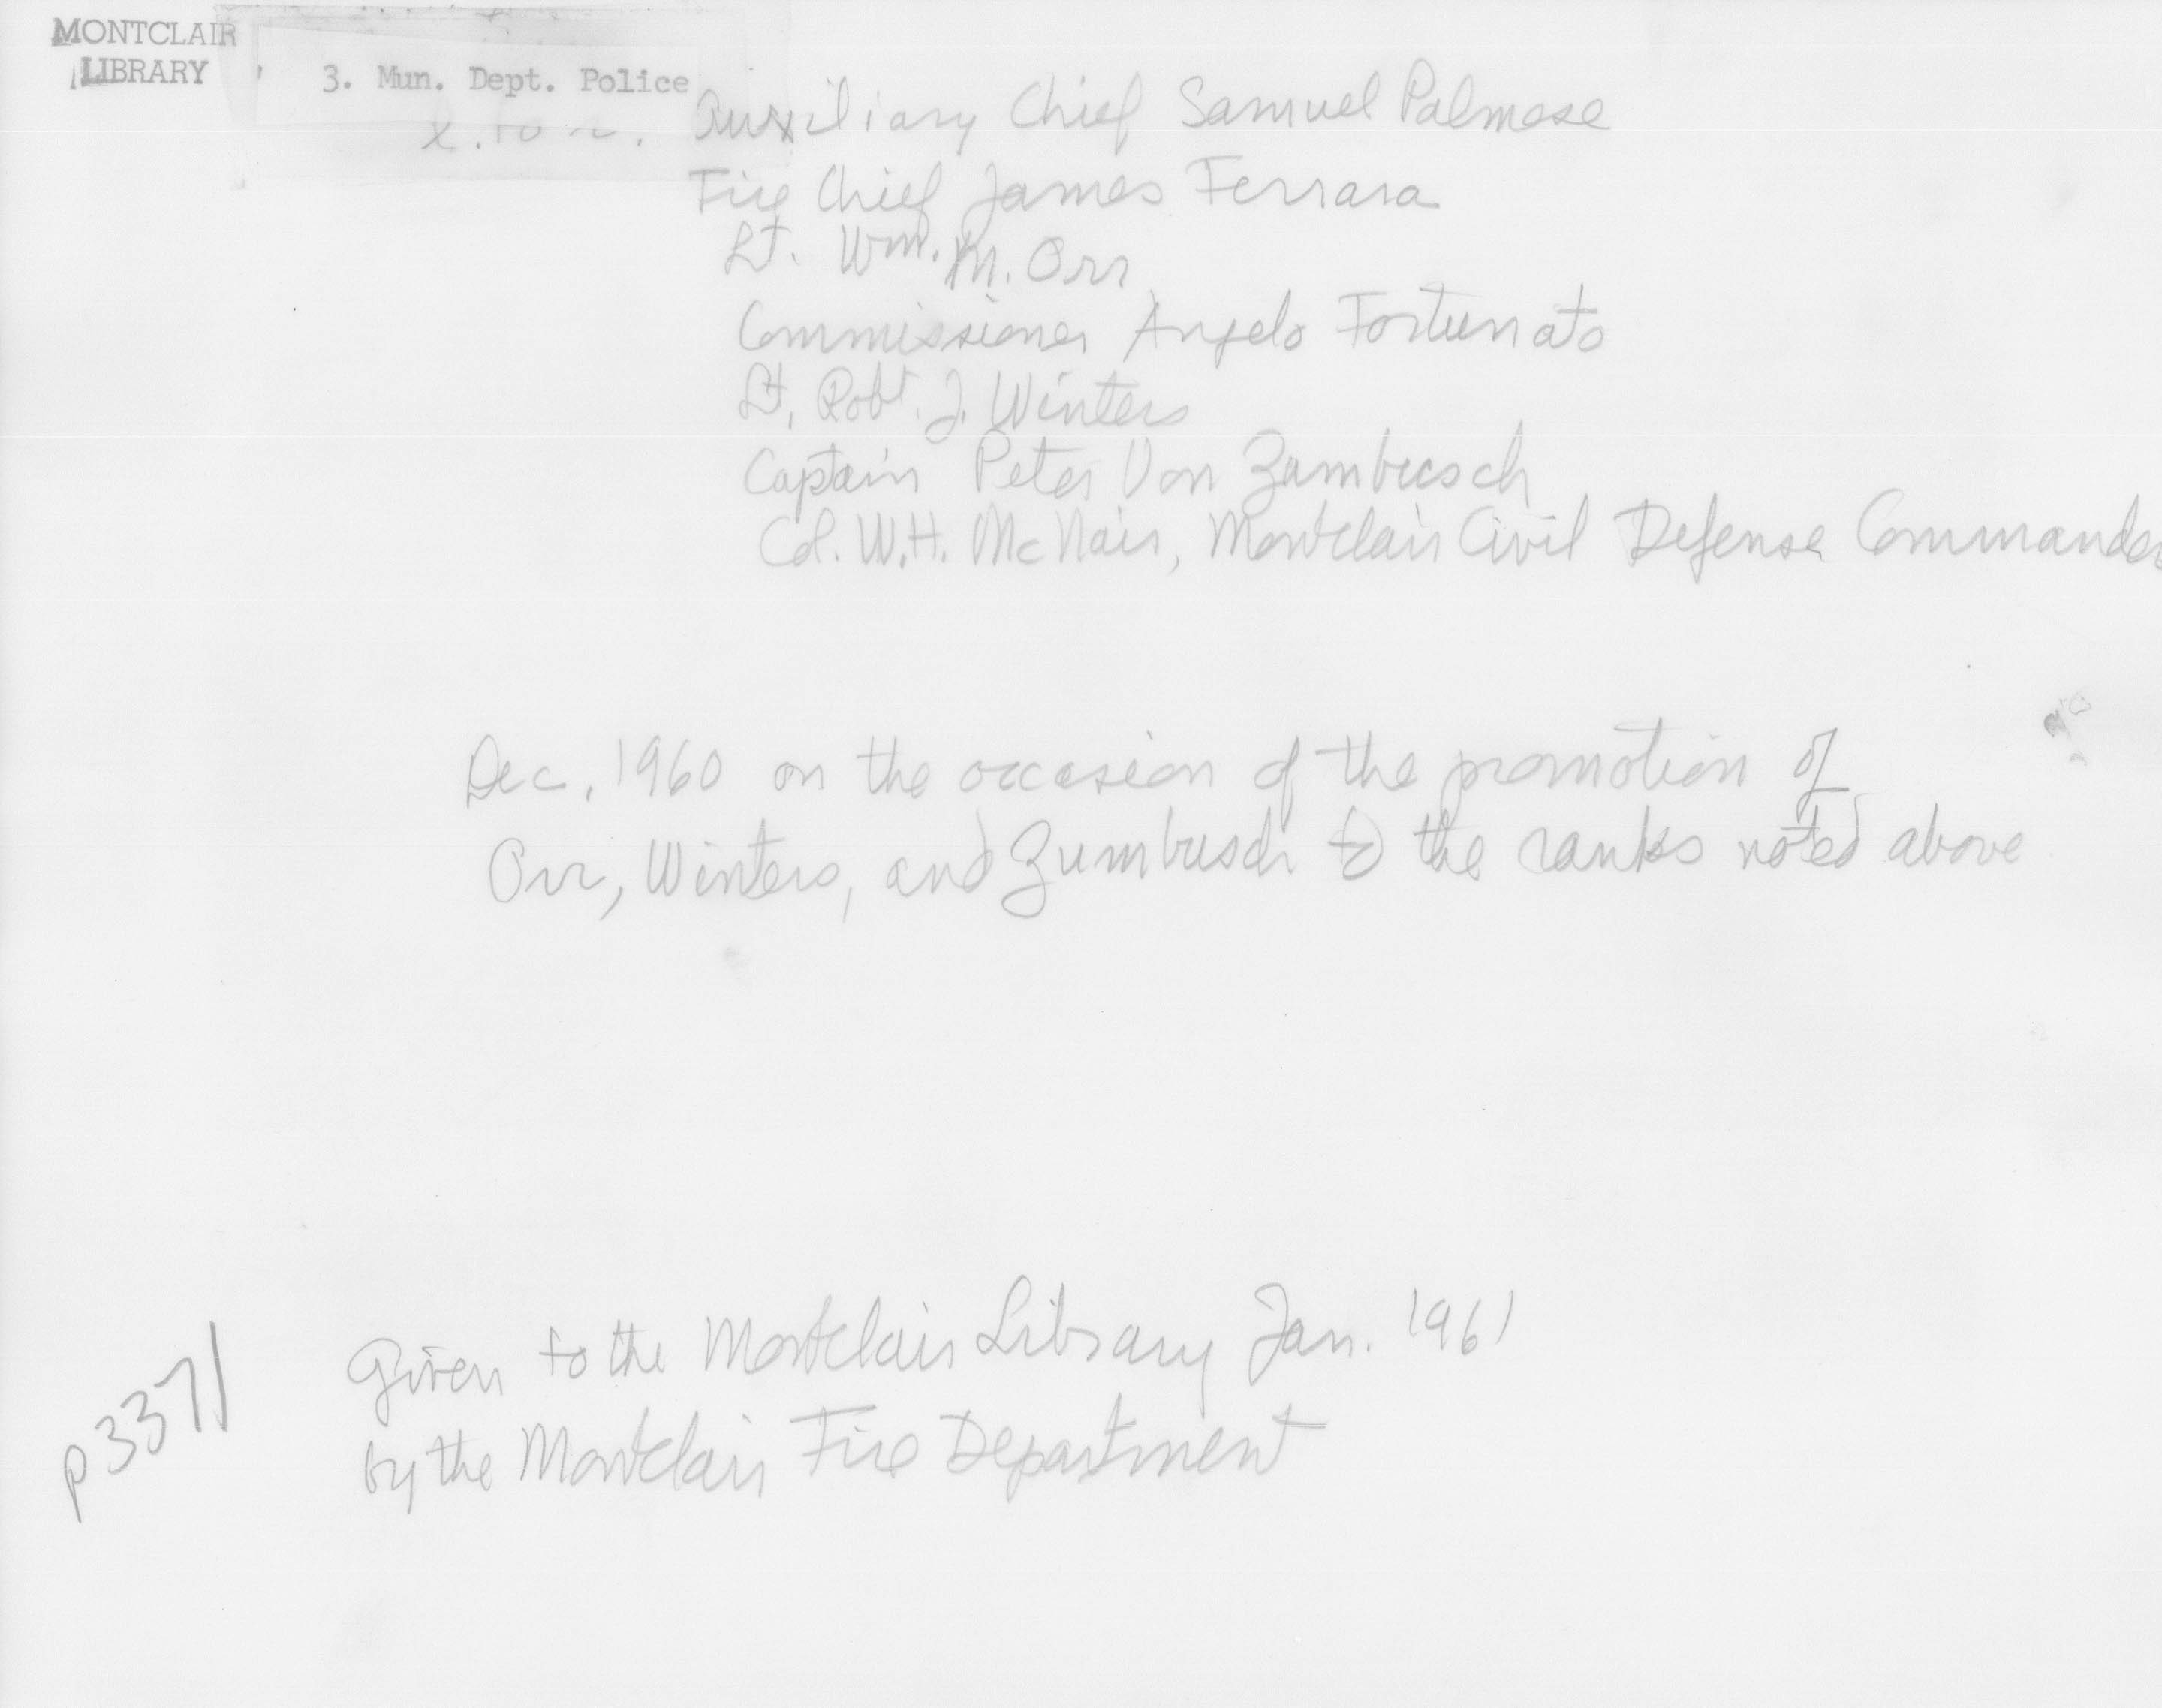 MONTCLAIR
LIBRARY
3. Mun. Dept. Police
Auxiliary Chief Samuel Palmese
Fire Chief James Ferrara
Lt. Wm. M. Orr
Commissioner Angelo Fortunato
Lt. Robt. J. Winters
Captain Peter Von Zumbusch
Col. W.H. McNair, Montclair Civil Defense Commander
Dec. 1960 on the occasion of the promotion of
Orr, Winters, and Zumbusch to the ranks noted above
Given to the Montclair Library Jan. 1961
by the Montclair Fire Department
p3371